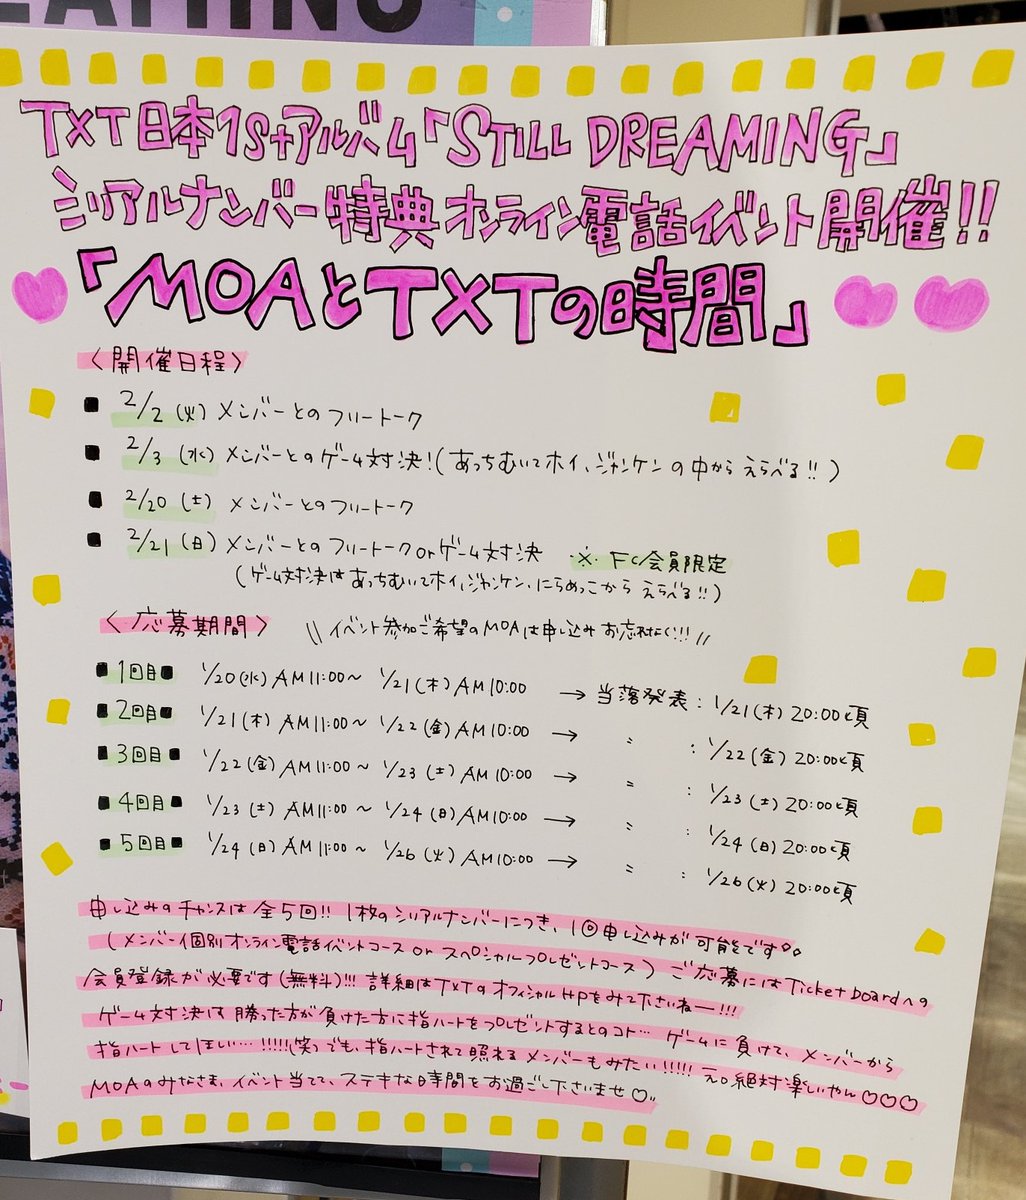 EAMING
TXT日本1stアルバム「STILL DREAMING」
シリアルナンバー特典オンライン電話イベント開催!!
「MOAとTXTの時間」
〈開催日程〉
■ 2/2(火) メンバーとのフリートーク
■ 2/3(水) メンバーとのゲーム対決!(あっちむいてホイ、ジャンケンの中からえらべる!!)
■ 2/20(土) メンバーとのフリートーク
■ 2/21(日) メンバーとのフリートークorゲーム対決 ※FC会員限定
(ゲーム対決はあっちむいてホイ、ジャンケン、にらめっこからえらべる!!)
〈応募期間〉 \\イベント参加ご希望のMOAは申し込みお忘れなく!!!//
■1回目■ 1/20(水)AM11:00~ 1/21(木)AM10:00 → 当落発表:1/21(木)20:00頃
■2回目■ 1/21(木)AM11:00~ 1/22(金)AM10:00 → 〃 :1/22(金)20:00頃
■3回目■ 1/22(金)AM11:00~ 1/23(土)AM10:00 → 〃 :1/23(土)20:00頃
■4回目■ 1/23(土)AM11:00~ 1/24(日)AM10:00 → 〃 :1/24(日)20:00頃
■5回目■ 1/24(日)AM11:00~ 1/26(火)AM10:00 → 〃 :1/26(火)20:00頃
申し込みのチャンスは全5回!! 1枚のシリアルナンバーにつき、1回申し込みが可能です。。
(メンバー個別オンライン電話イベントコース or スペシャルプレゼントコース) ご応募にはTicket boardへの
会員登録が必要です(無料)!!! 詳細はTXTのオフィシャルHPをみて下さいねー!!!
ゲーム対決は勝った方が負けた方に指ハートをプレゼントするとのコト… ゲームに負けて、メンバーから
指ハートしてほしい…!!!!!(笑)でも、指ハートされて照れるメンバーもみたい!!!!! え。絶対楽しいやん♡♡♡
MOAのみなさま、イベント当てて、ステキな時間をお過ごし下さいませ♡..